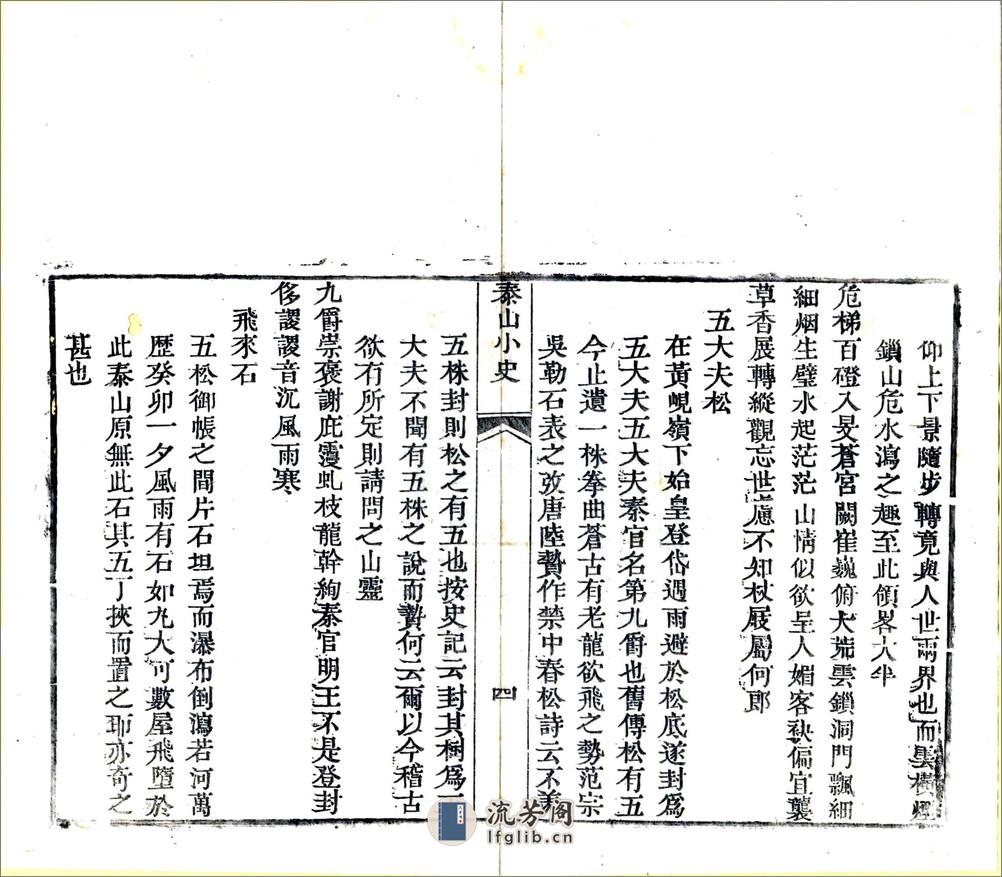 仰上下景隨步轉竟與人世兩界也而雲橫煙
鎖山危水瀉之趣至此領畧大半
危梯百磴入旻蒼宮闕崔巍俯大荒雲鎖洞門飄細
細烟生璧水起茫茫山情似欲呈人媚客袂偏宜襲
草香展轉縱觀忘世慮不知杖屐屬何郎
五大夫松
在黃峴嶺下始皇登岱遇雨避於松底遂封爲
五大夫五大夫秦官名第九爵也舊傳松有五
今止遺一株拳曲蒼古有老龍欲飛之勢范宗
吳勒石表之攷唐陸贄作禁中春松詩云不羨
泰山小史
四
五株封則松之有五也按史記云封其樹爲五
大夫不聞有五株之說而贄何云爾以今稽古
欲有所定則請問之山靈
九爵崇褒謝庇霪虬枝龍幹絢秦官明王不是登封
侈謖謖音沉風雨寒
飛來石
五松御帳之間片石坦焉而瀑布倒瀉若河萬
歷癸卯一夕風雨有石如丸大可數屋飛墮於
此泰山原無此石其五丁挾而置之耶亦奇之
甚也
流芳阁
lfglib.cn